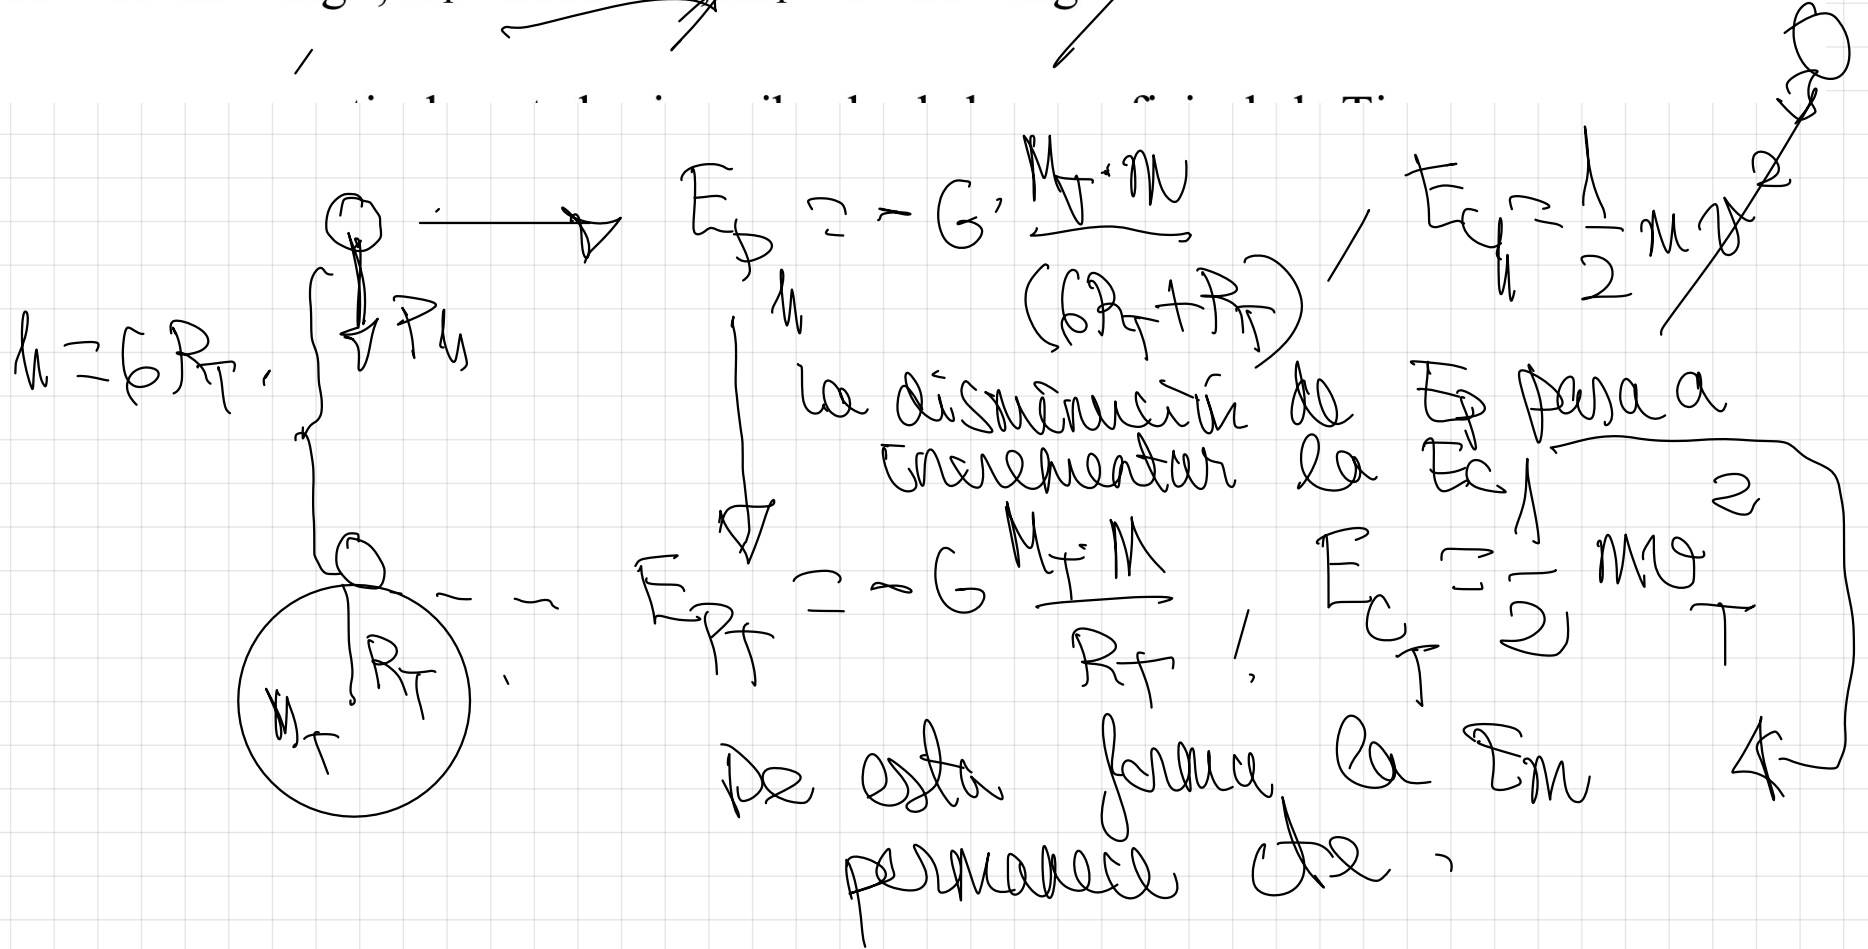 E_{p_h} = - G · \frac{M_T · m}{(6R_T + R_T)} / E_{c_h} = \frac{1}{2} m v^2 0
P_h
h = 6R_T.
La disminución de Ep pasa a
incrementar la Ec
E_{p_T} = - G \frac{M_T · m}{R_T} ; E_{c_T} = \frac{1}{2} m v_T^2
R_T
M_T
De esta forma la Em
permanece cte.